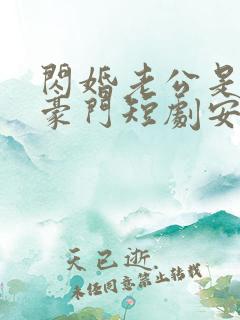 閃婚老公是
豪門短劇安
天已逝.
未经同意禁止转载